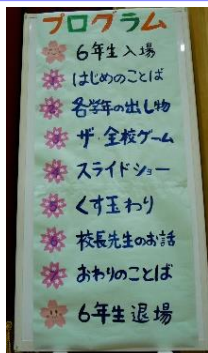 プログラム
6年生入場
はじめのことば
各学年の出し物
ザ・全校ゲーム
スライドショー
くす玉わり
校長先生のお話
おわりのことば
6年生退場